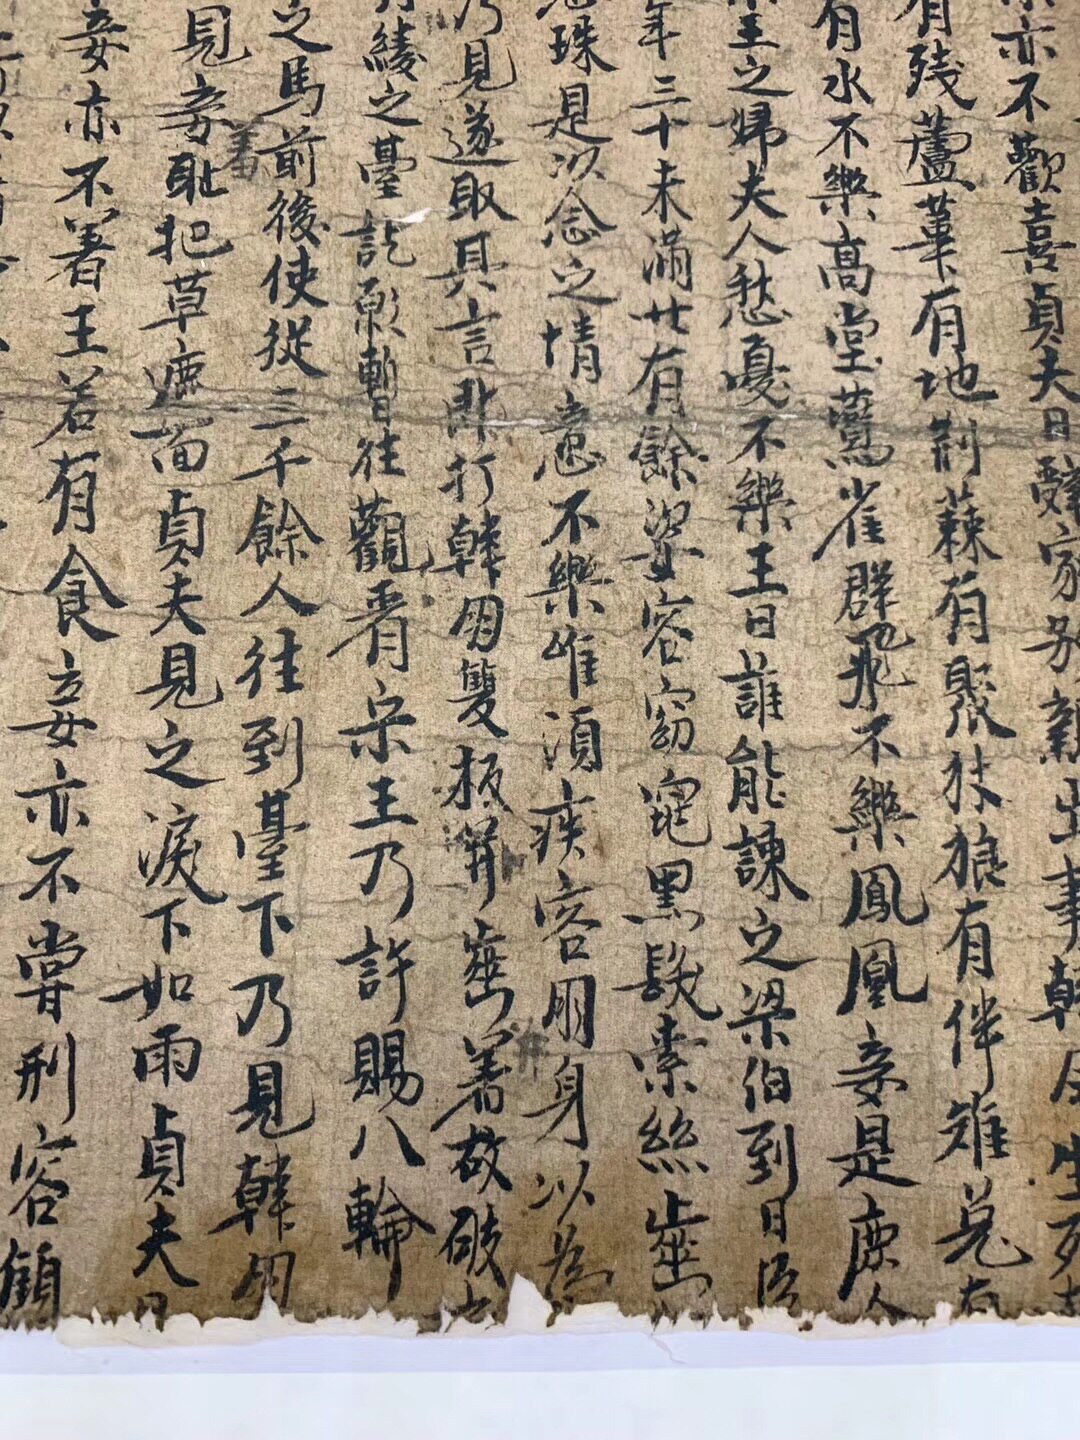 亦不歡喜貞夫曰辞家别親出事韓
有殘蘆葦有地荆蕀有聚犲狼有伴雉兎
有水不樂髙堂鷰雀群飛不樂鳳凰妾是庶人
王之婦夫人愁憂不樂王曰誰能諫之梁伯到曰臣
年三十未滿廿有餘姿容窈窕黒髮素絲齒
珠是以念之情意不樂唯須疾害朋身以為
乃見遂取其言即打韓朋雙板并齒着故破
綾之臺訖乞暫往觀看宋王乃許賜八輪
之馬前後使從三千餘人往到臺下乃見韓朋
見羞恥把草遮面貞夫見之淚下如雨貞夫曰
妾亦不着王若有食妾亦不甞刑容顀